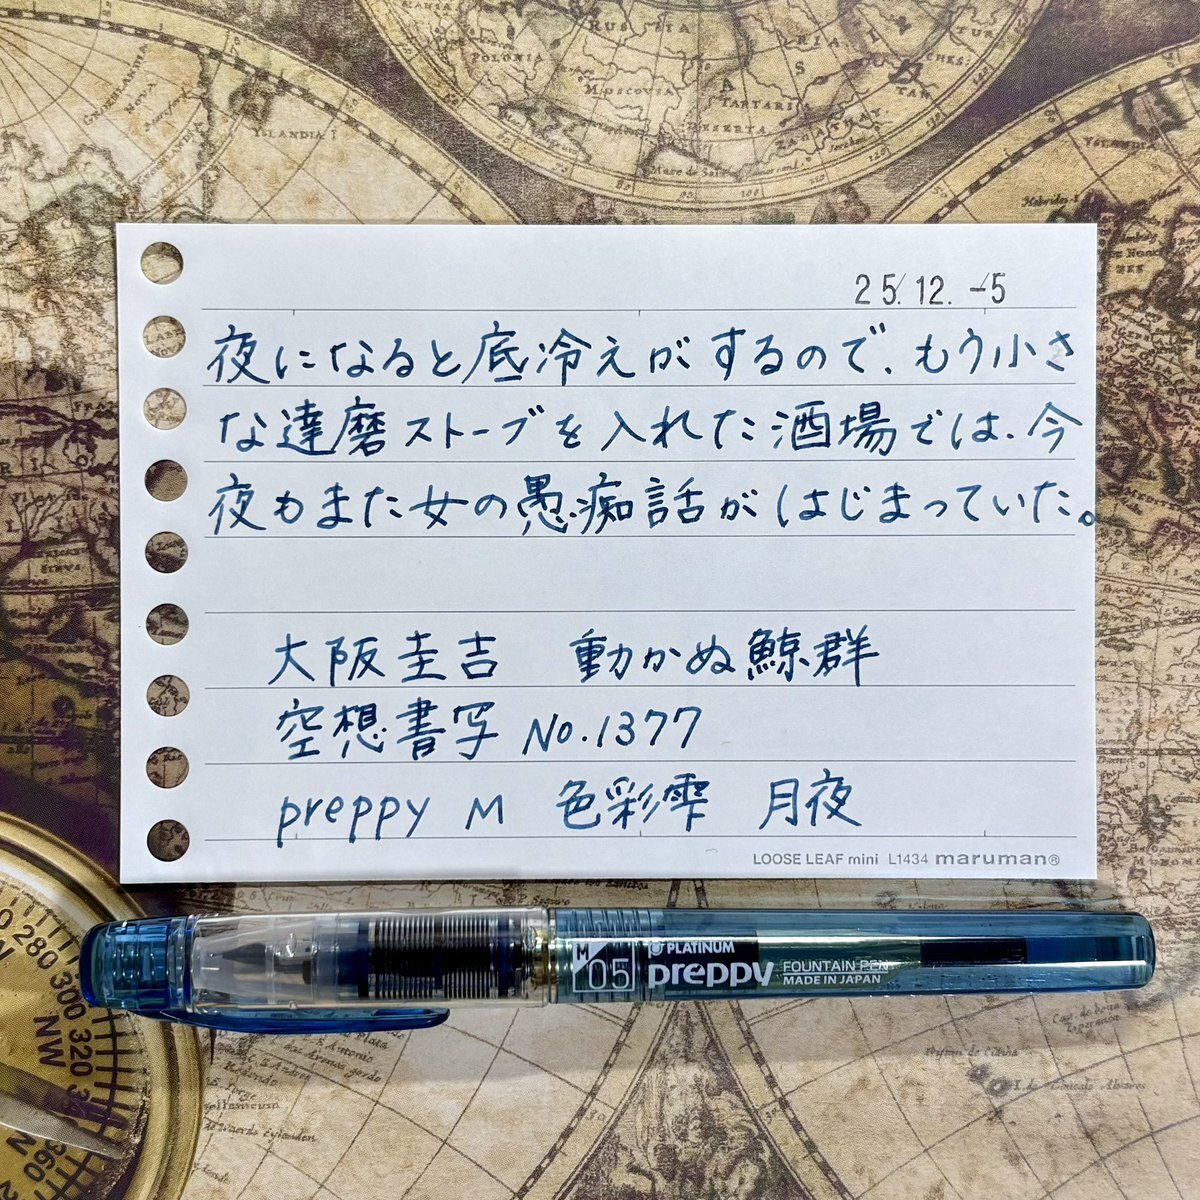 25.12.-5
夜になると底冷えがするので、もう小さ
な達磨ストーブを入れた酒場では、今
夜もまた女の愚痴話がはじまっていた。
大阪圭吉 動かぬ鯨群
空想書写 No.1377
preppy M 色彩雫 月夜
LOOSE LEAF mini L1434 maruman®
M
05
PLATINUM
preppy
FOUNTAIN PEN
MADE IN JAPAN
YSLANDIA I
MOSCOVIA
TARTARIA
DESERTA
280
300
320
NW
N
360
20